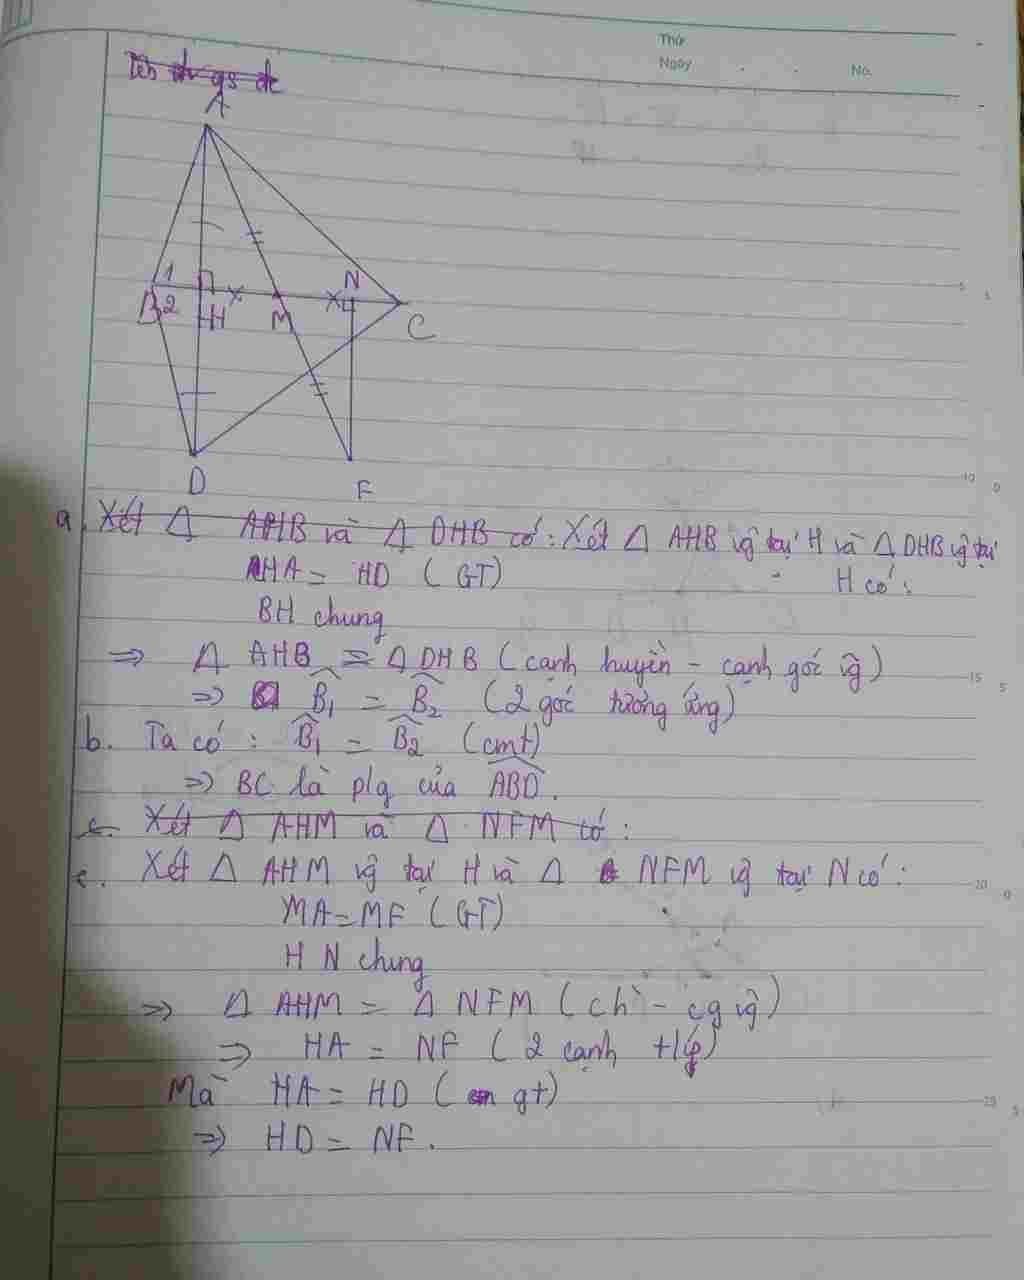 Thứ
Ngày
No.
A
1
N
B 2
H
M
C
D
F
a. Xét Δ AHB và Δ DHB có: Xét Δ AHB vg tại H và Δ DHB vg tại
H có:
HA = HD (GT)
BH chung
⇒ Δ AHB = Δ DHB (cạnh huyền - cạnh góc vg)
⇒ B̂₁ = B̂₂ (2 góc tương ứng)
b. Ta có: B̂₁ = B̂₂ (cmt)
⇒ BC là plg của ABD.
c. Xét Δ AHM và Δ NFM có:
c. Xét Δ AHM vg tại H và Δ NFM vg tại N có:
MA = MF (GT)
HN chung
⇒ Δ AHM = Δ NFM (ch - cg vg)
⇒ HA = NF (2 cạnh)
Mà HA = HD (gt)
⇒ HD = NF.